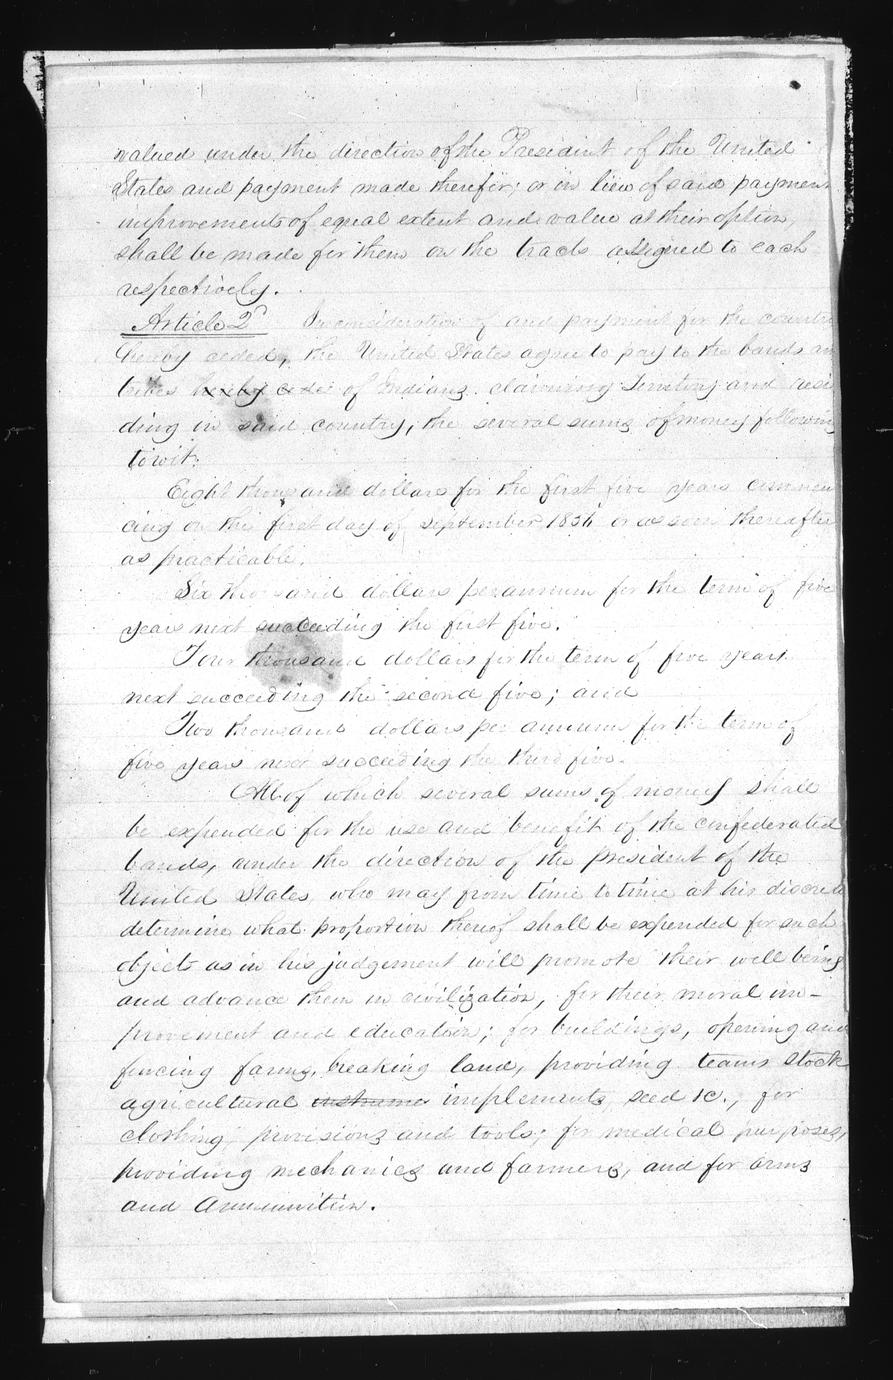 valued under the direction of the President of the United
States and payment made therefor; or in lieu of said paymen
improvements of equal extent and value at their option,
shall be made for them on the tracts assigned to each
respectively.
Article 2d In consideration of and payment for the countr
hereby ceded, the United States agree to pay to the bands an
tribes hereby cede of Indians claiming Territory and resi
ding in said country, the several sums of money following
towit:
Eight thousand dollars for the first five years commen
cing on the first day of September, or as soon thereafter
as practicable.
Six thousand dollars per annum for the term of five
years next succeeding the first five.
Four thousand dollars for the term of five years
next succeeding the second five; and
Two thousand dollars per annum for the term of
five years next succeeding the third five.
All of which several sums of money shall
be expended for the use and benefit of the confederated
bands, under the direction of the president of the
United States, who may from time to time at his discreti
determine what proportion thereof shall be expended for such
objects as in his judgement will promote their well being
and advance them in civilization, for their moral im-
provement and education; for buildings, opening and
fencing farms, breaking land, providing teams stock
agricultural instrume implements, seed &c., for
clothing, provisions and tools; for medical purposes,
providing mechanics and farmers, and for arms
and Ammunition.